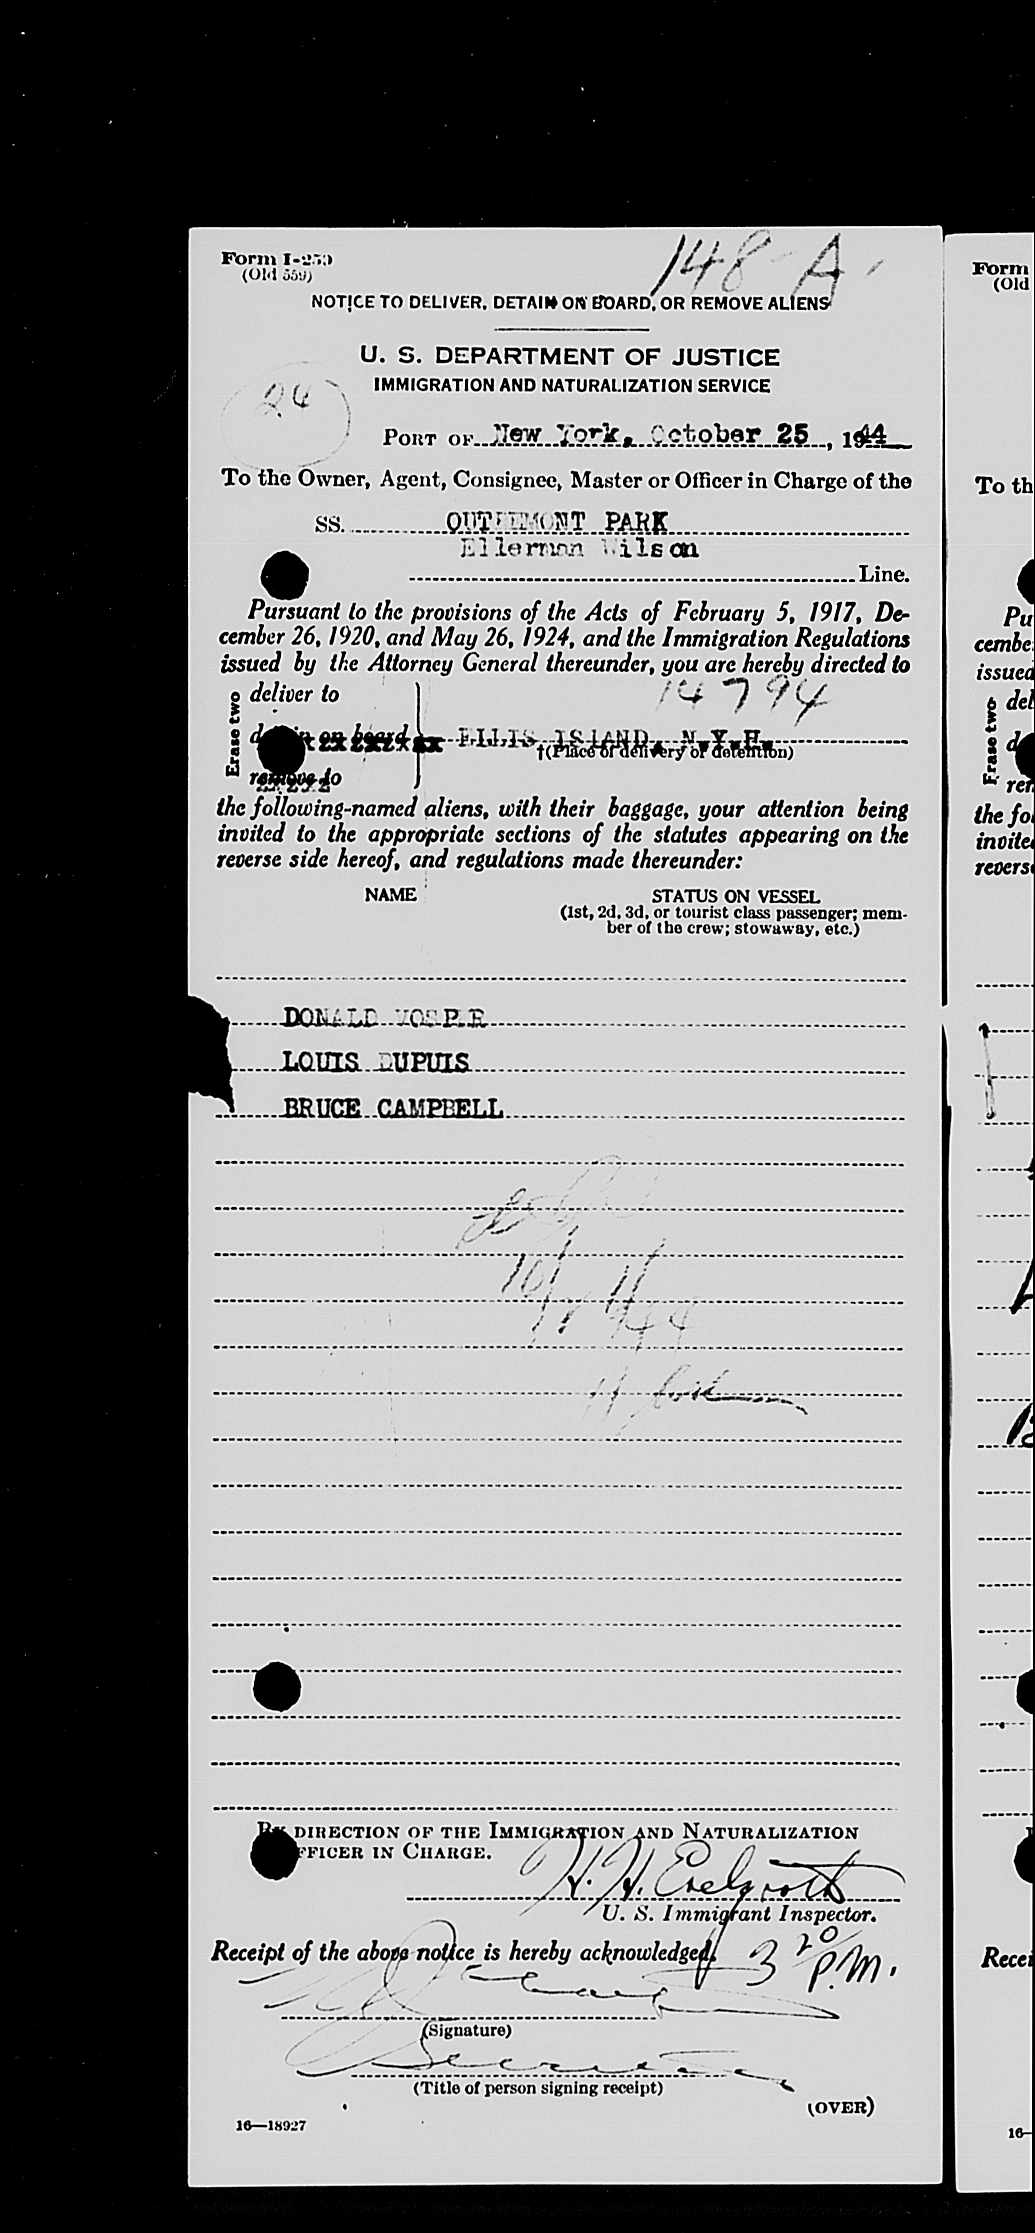 148-A
Form I-259
(Old 559)
NOTICE TO DELIVER, DETAIN ON BOARD, OR REMOVE ALIENS
U. S. DEPARTMENT OF JUSTICE
IMMIGRATION AND NATURALIZATION SERVICE
24
PORT OF New York, October 25, 1944
To the Owner, Agent, Consignee, Master or Officer in Charge of the
SS. OUTREMONT PARK
Ellerman Wilson
Line.
Pursuant to the provisions of the Acts of February 5, 1917, De-
cember 26, 1920, and May 26, 1924, and the Immigration Regulations
issued by the Attorney General thereunder, you are hereby directed to
Erase two
deliver to
14794
on board ELLIS ISLAND, N.Y.H.
†(Place of delivery or detention)
remove to
the following-named aliens, with their baggage, your attention being
invited to the appropriate sections of the statutes appearing on the
reverse side hereof, and regulations made thereunder:
NAME STATUS ON VESSEL
(1st, 2d, 3d, or tourist class passenger; mem-
ber of the crew; stowaway, etc.)
DONALD VOSPER
LOUIS DUPUIS
BRUCE CAMPBELL
BY DIRECTION OF THE IMMIGRATION AND NATURALIZATION
OFFICER IN CHARGE.
H. H.
U. S. Immigrant Inspector.
Receipt of the above notice is hereby acknowledged. 3 20 P.M.
(Signature)
(Title of person signing receipt)
(OVER)
16—18927
Form
(Old
To th
Pu
cembe
issued
Erase two
del
d
ren
the fo
invite
revers
Recei
16—